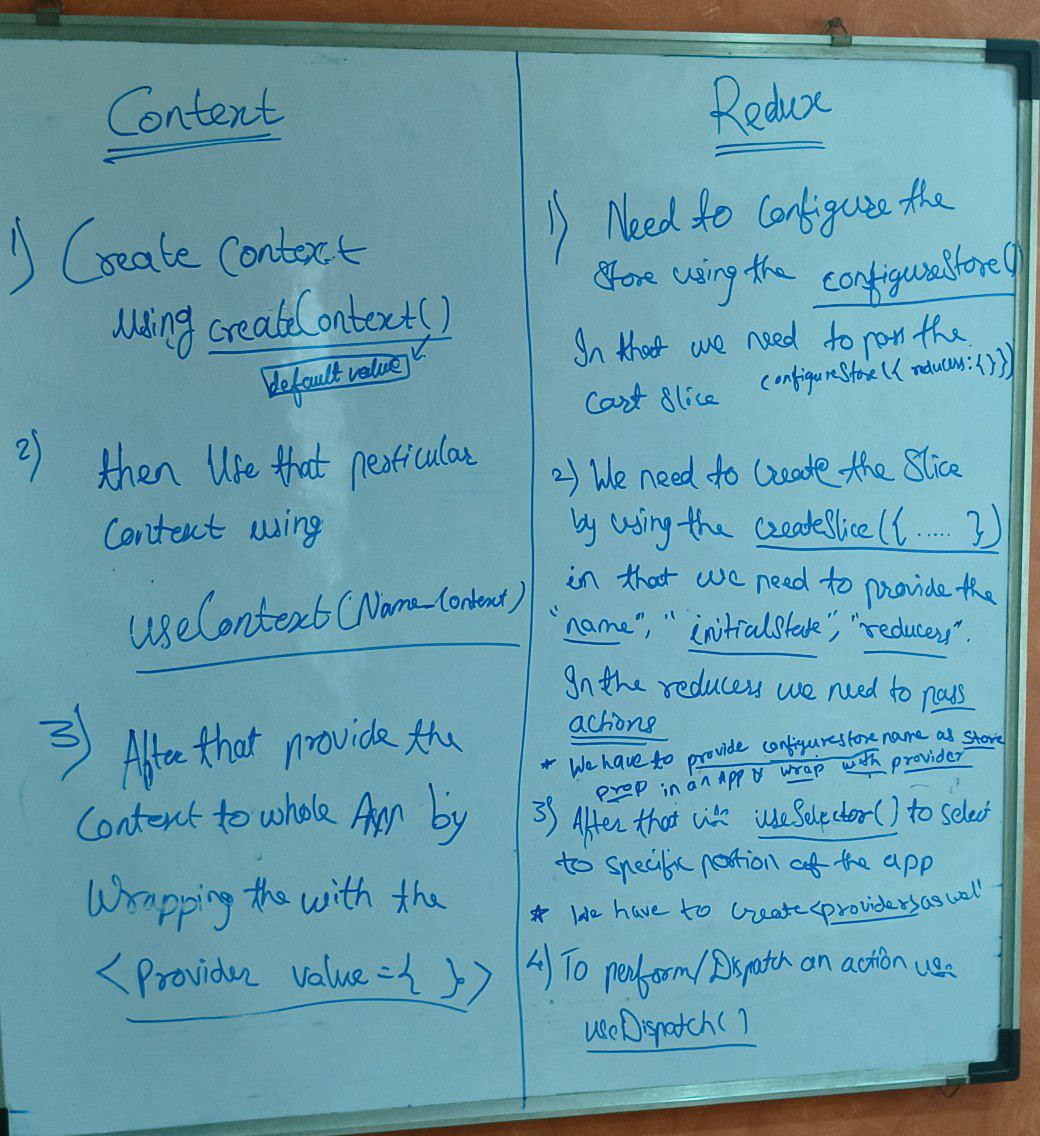 Context
1) Create Context
using createContext()
default value
2)
then Use that perticular
Context using
useContext(Name-Context)
3) After that provide the
Context to whole App by
Wrapping the with the
<Provider value={ }>
Redux
1) Need to Configure the
Store using the configureStore()
In that we need to pass the
configureStore({ reducers:{}})
Cart Slice
2) We need to Create the Slice
by using the createSlice({ ..... })
in that we need to provide the
"name", "initialState", "reducers".
In the reducers we need to pass
actions
* We have to provide configurestore name as store
prop in an App & wrap with provider
3) After that use useSelector() to select
to specific portion of the app
* We have to create <providers> as well
4) To perform/Dispatch an action use
useDispatch()